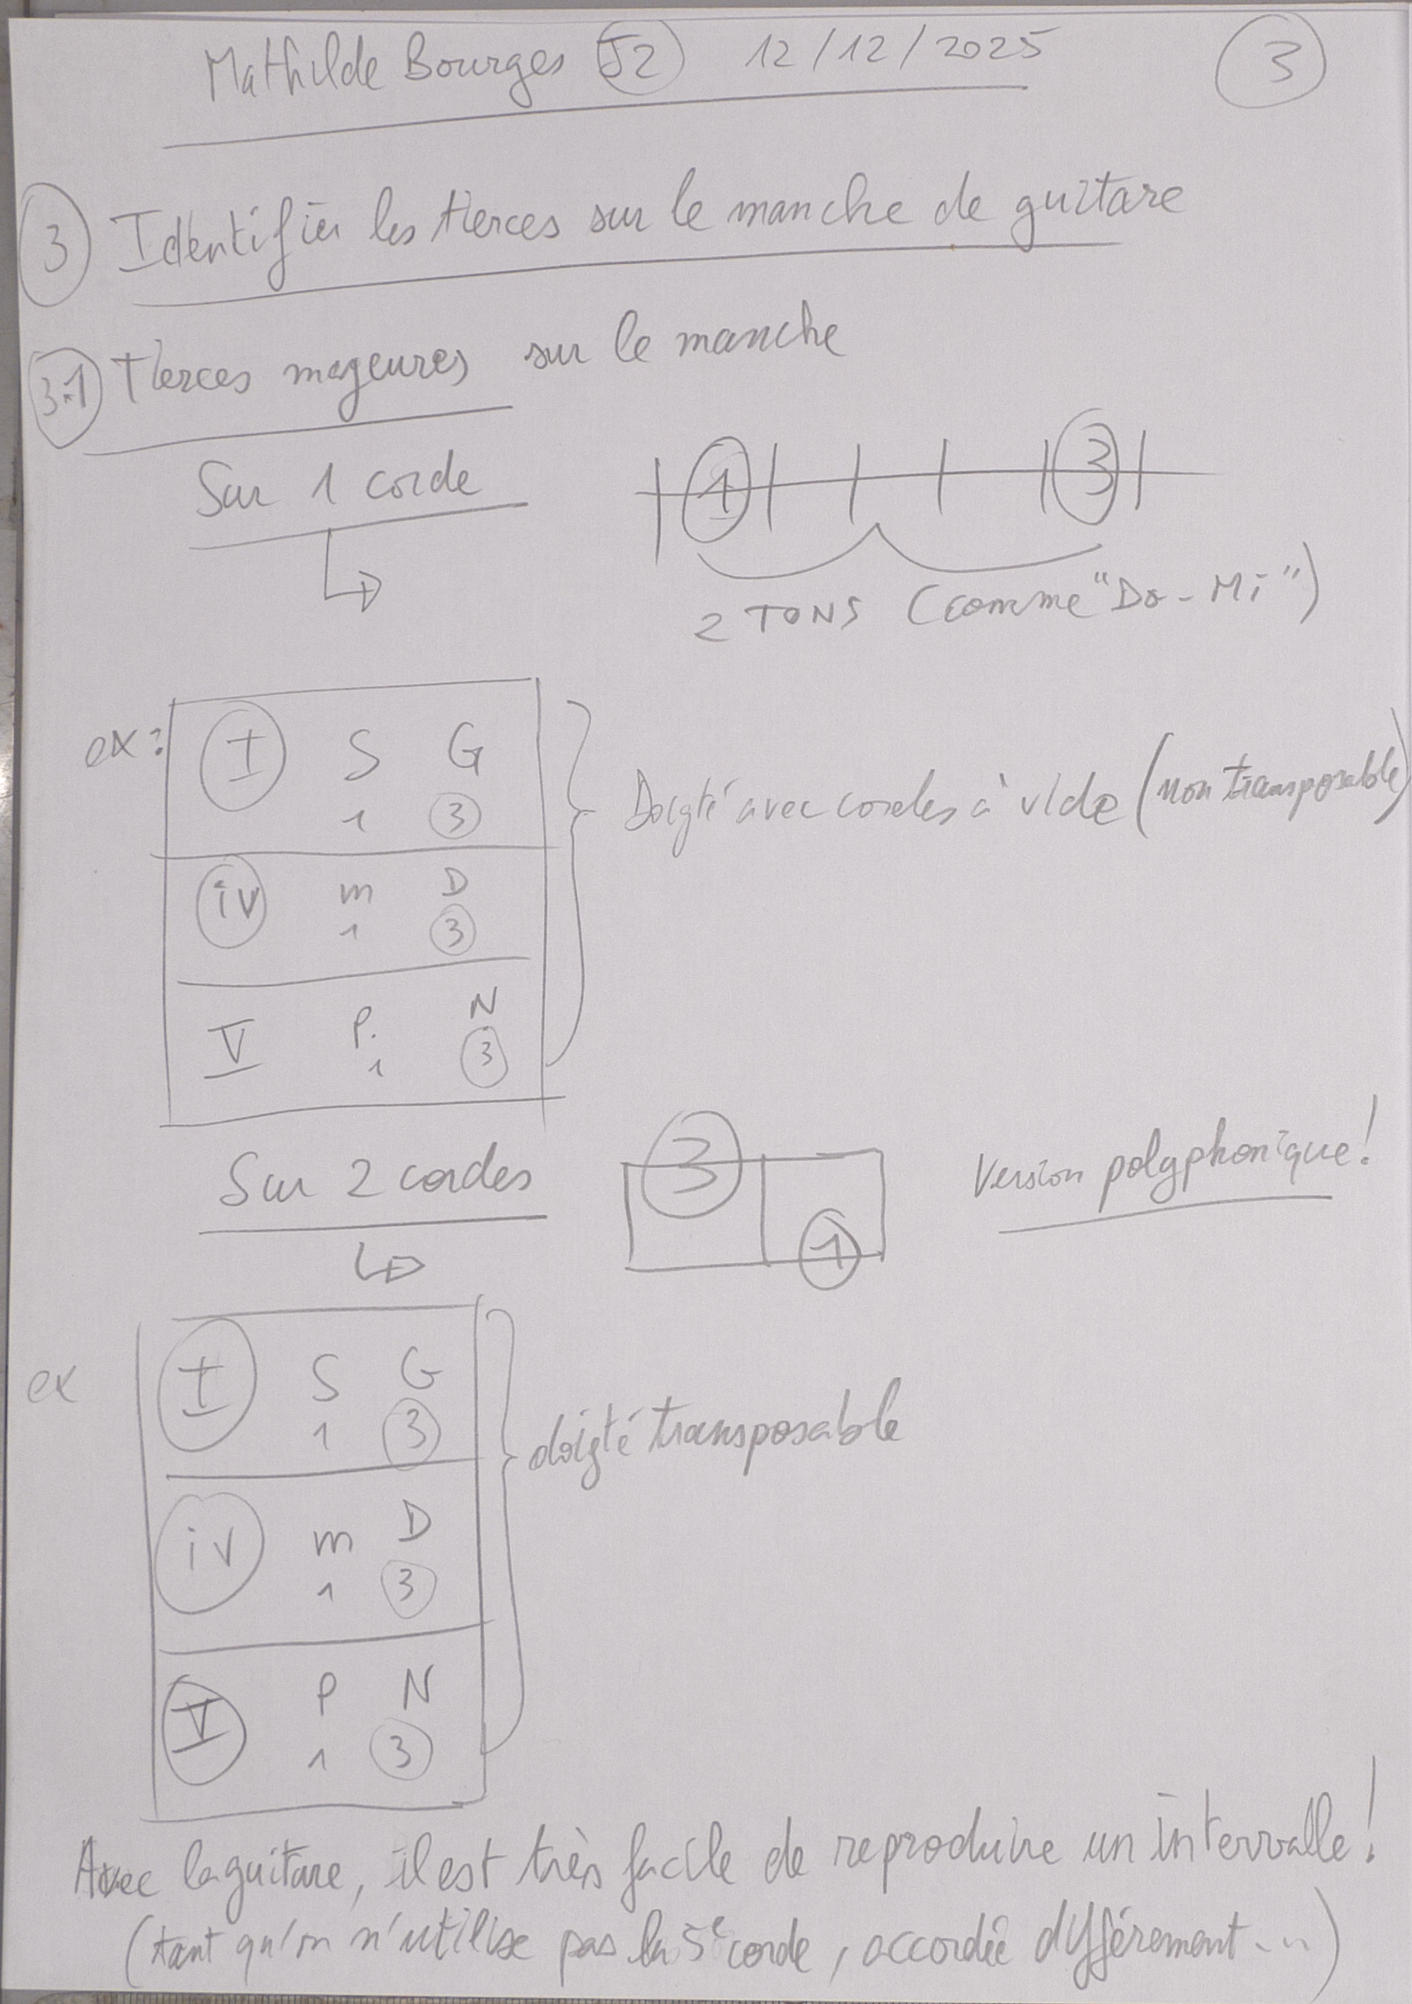 Mathilde Bourges J2 12/12/2025 3
3 Identifier les tierces sur le manche de guitare
3.1 Tierces majeures sur le manche
Sur 1 corde
1 3
2 TONS (comme "Do - Mi")
ex:
I S G
1 3
iv m D
1 3
V P. N
1 3
Doigté avec cordes à vide (non transposable)
Sur 2 cordes
3
1
Version polyphonique!
ex
I S G
1 3
iv m D
1 3
V P N
1 3
doigté transposable
Avec la guitare, il est très facile de reproduire un intervalle!
(tant qu'on n'utilise pas la 5e corde, accordée différement...)